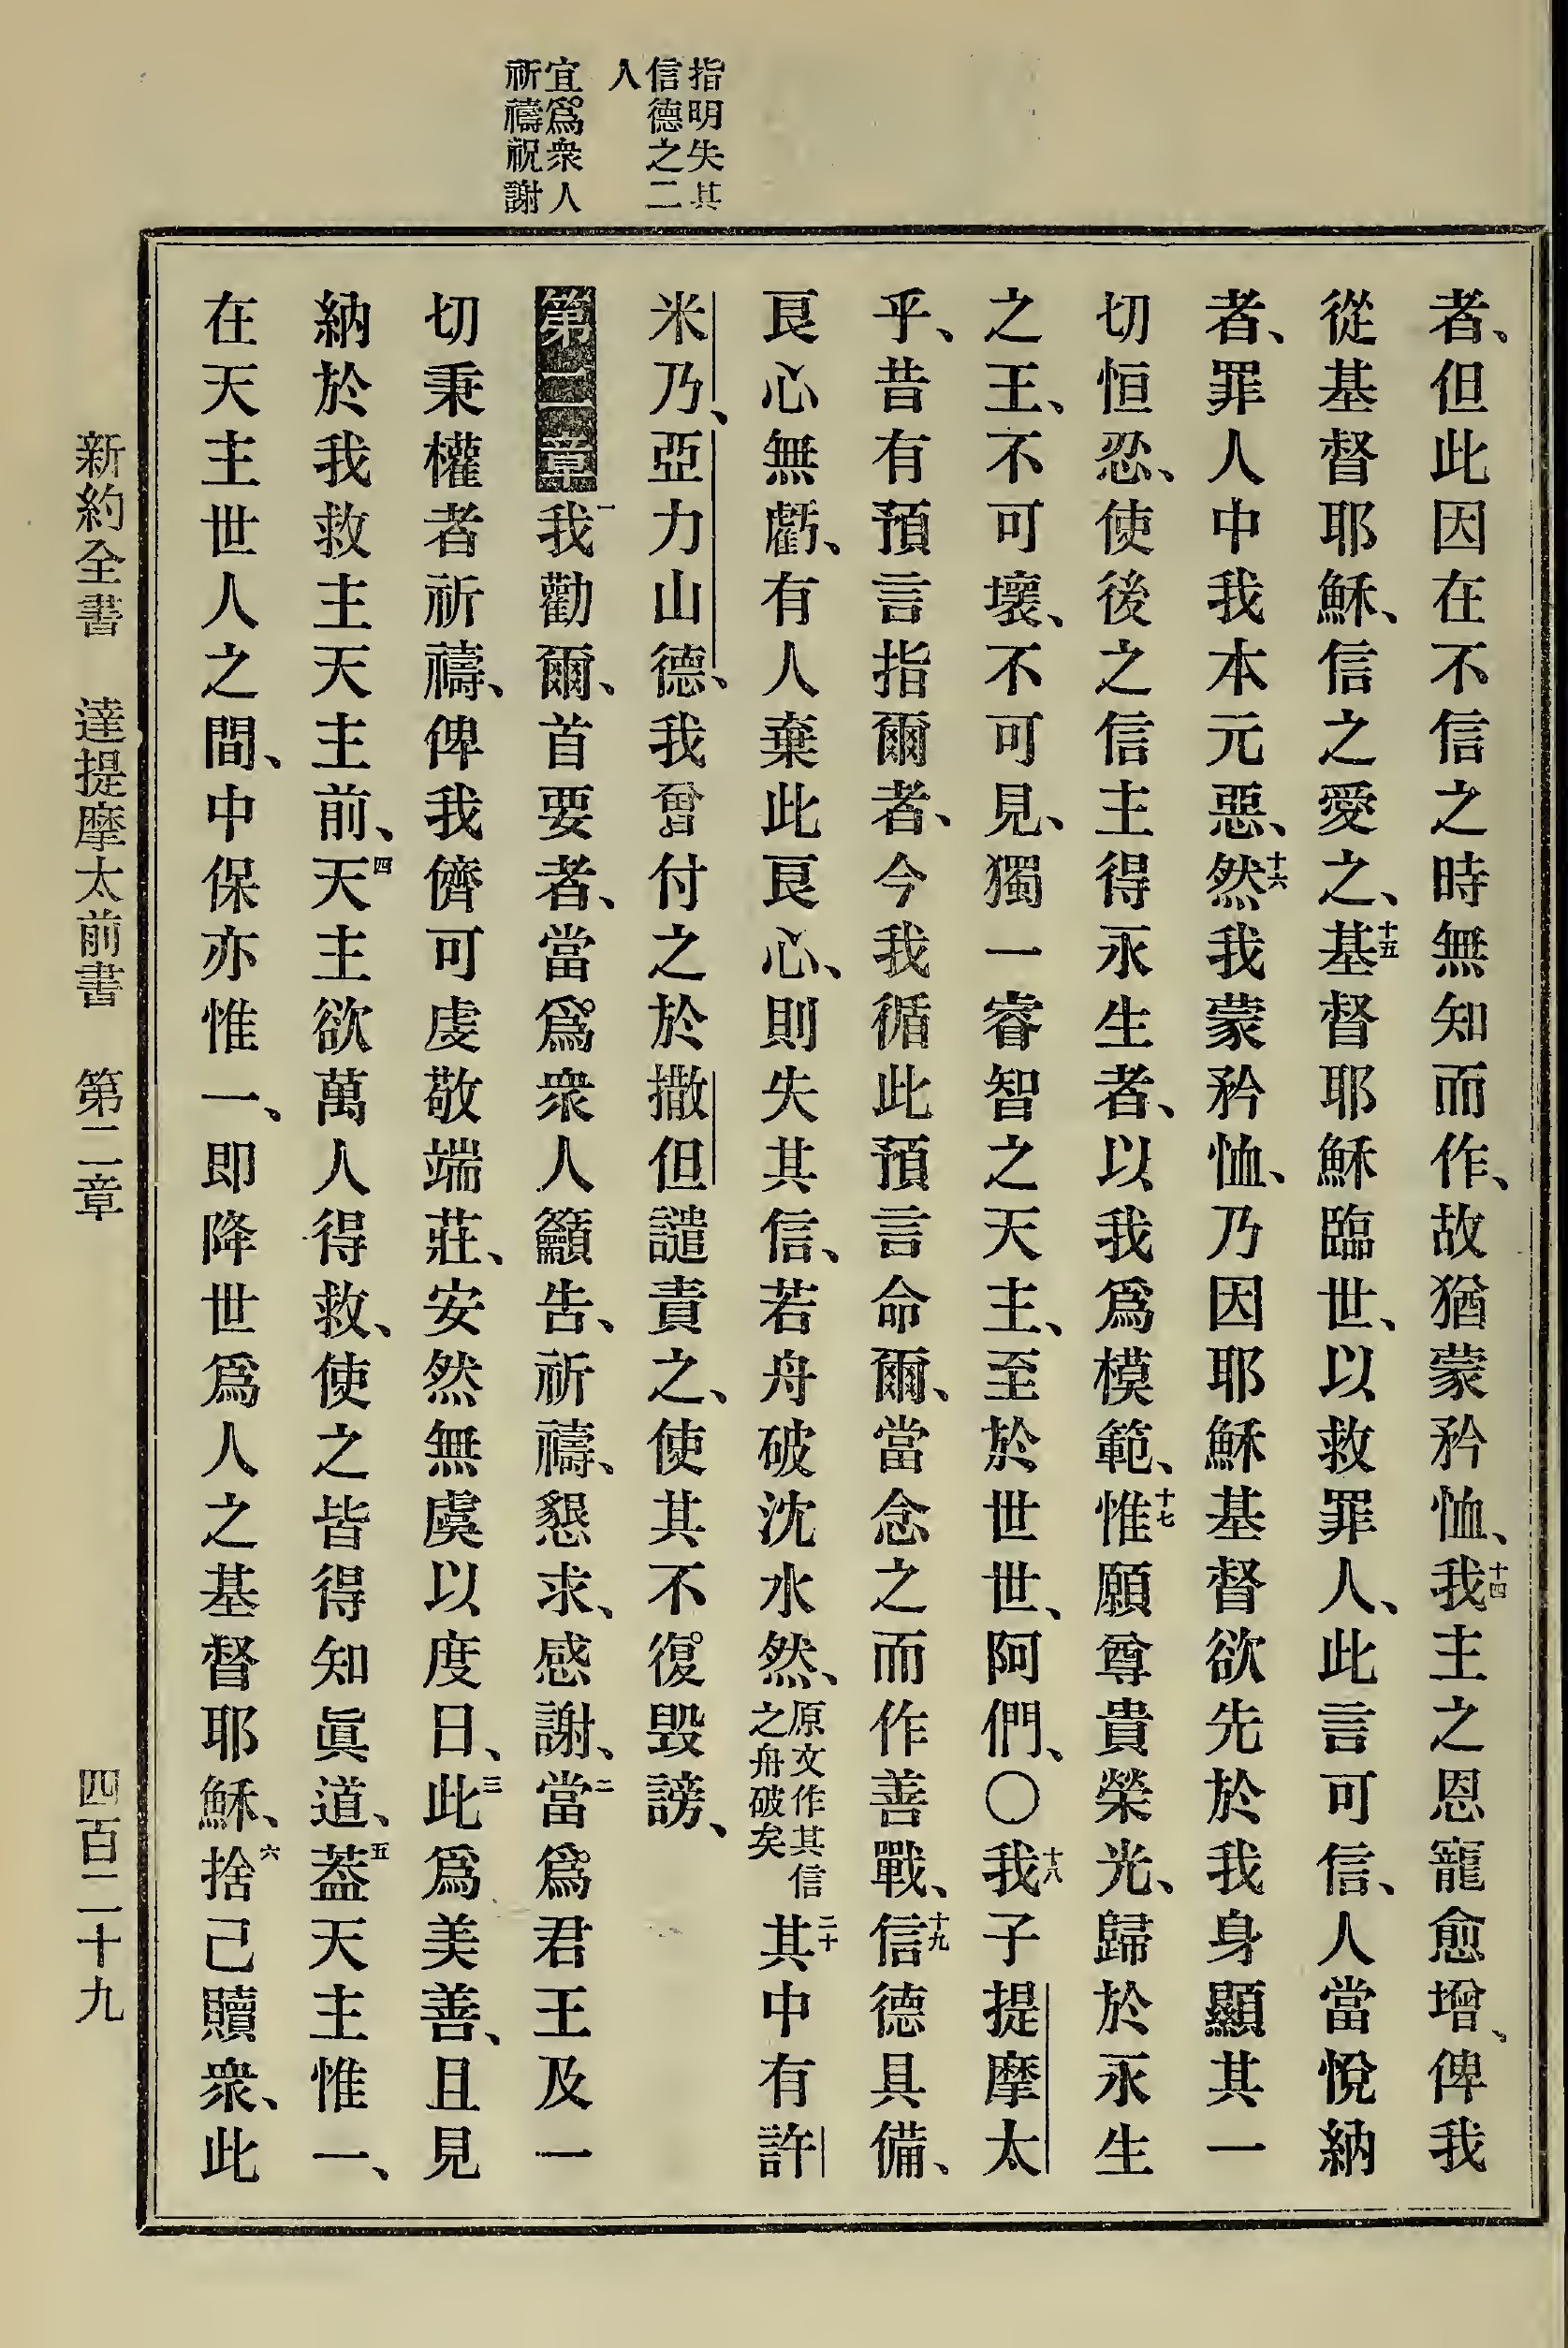 指明失其
信德之二
人
宜爲衆人
祈禱祝謝
者、但此因在不信之時無知而作、故猶蒙矜恤、十四我主之恩寵愈增、俾我
從基督耶穌、信之愛之、十五基督耶穌臨世、以救罪人、此言可信、人當悅納
者、罪人中我本元惡、十六然我蒙矜恤、乃因耶穌基督欲先於我身顯其一
切恒忍、使後之信主得永生者、以我爲模範、十七惟願尊貴榮光、歸於永生
之王、不可壞、不可見、獨一睿智之天主、至於世世、阿們、〇十八我子提摩太
乎、昔有預言指爾者、今我循此預言命爾、當念之而作善戰、十九信德具備、
良心無虧、有人棄此良心、則失其信、若舟破沈水然、原文作其信之舟破矣二十其中有許
米乃、亞力山德、我曾付之於撒但譴責之、使其不復毀謗、
第二章一我勸爾、首要者、當爲衆人籲告、祈禱、懇求、感謝、二當爲君王及一
切秉權者祈禱、俾我儕可虔敬端莊、安然無虞以度日、三此爲美善、且見
納於我救主天主前、四天主欲萬人得救、使之皆得知眞道、五蓋天主惟一、
在天主世人之間、中保亦惟一、即降世爲人之基督耶穌、六捨己贖衆、此
新約全書 達提摩太前書 第二章 四百二十九